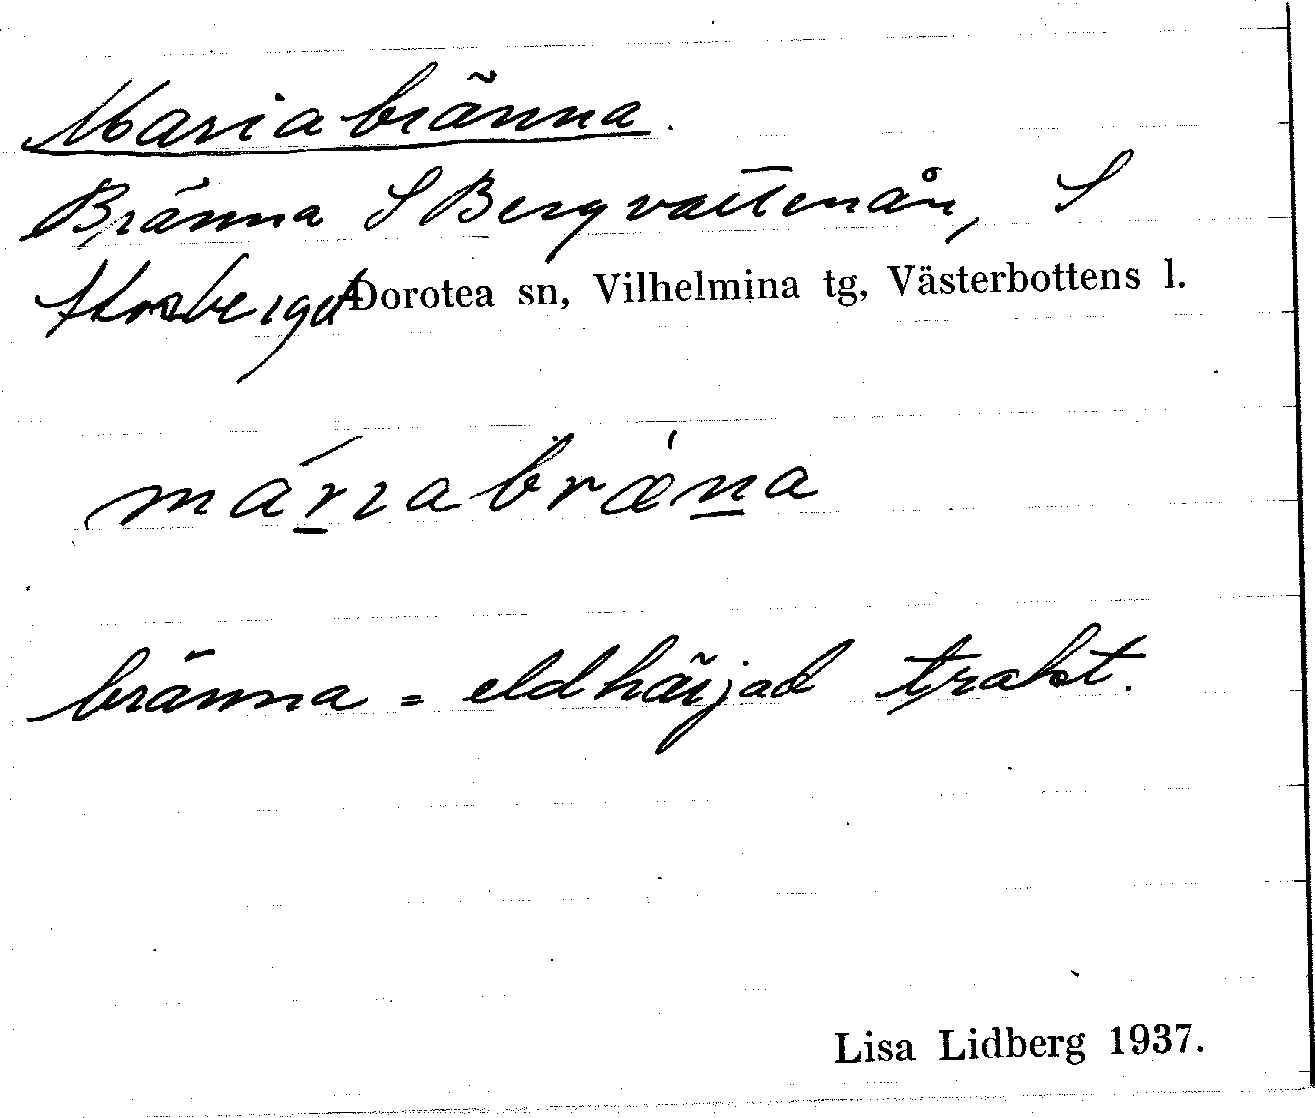 Mariabränna.
Bränna S Bergvattenån, S
Storberget Dorotea sn, Vilhelmina tg, Västerbottens l.
márıabrǽna
bränna = eldhärjad trakt.
Lisa Lidberg 1937.